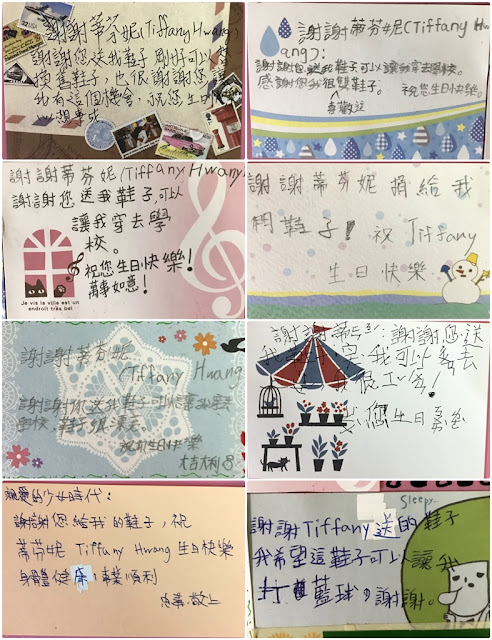 謝謝蒂芬妮(Tiffany Hwang)
謝謝您送我鞋子剛好可以
換舊鞋子,也很謝謝您讓
我有這個機會,祝您生日快
心想事成
謝謝蒂芬妮(Tiffany Hw
ang):
謝謝您送我鞋子可以讓我穿去學校。
感謝您我很雙鞋子。 祝您生日快樂。
喜歡這
謝謝蒂芬妮(Tiffany Hwang)
謝謝您送我鞋子,可以
讓我穿去學
校。
祝您生日快樂!
萬事如意!
Je vis la ville est un
endroit très bel
謝謝蒂芬妮 捐給我
們鞋子! 祝Tiffany
生日快樂
謝謝蒂芬妮
(Tiffany Hwang
謝謝你送我鞋子可以讓我穿去
學校,鞋子很漂亮
祝你生日快樂
大吉大利
謝謝蒂 謝謝您送
我 我可以 去
我很
您生日
親愛的少女時代:
謝謝您給我的鞋子,祝
蒂芬妮 Tiffany Hwang 生日快樂
身體健康,事業順利
敬上
Sleepy...
謝謝Tiffany送的鞋子
我希望這鞋子可以讓我
打藍球,謝謝。